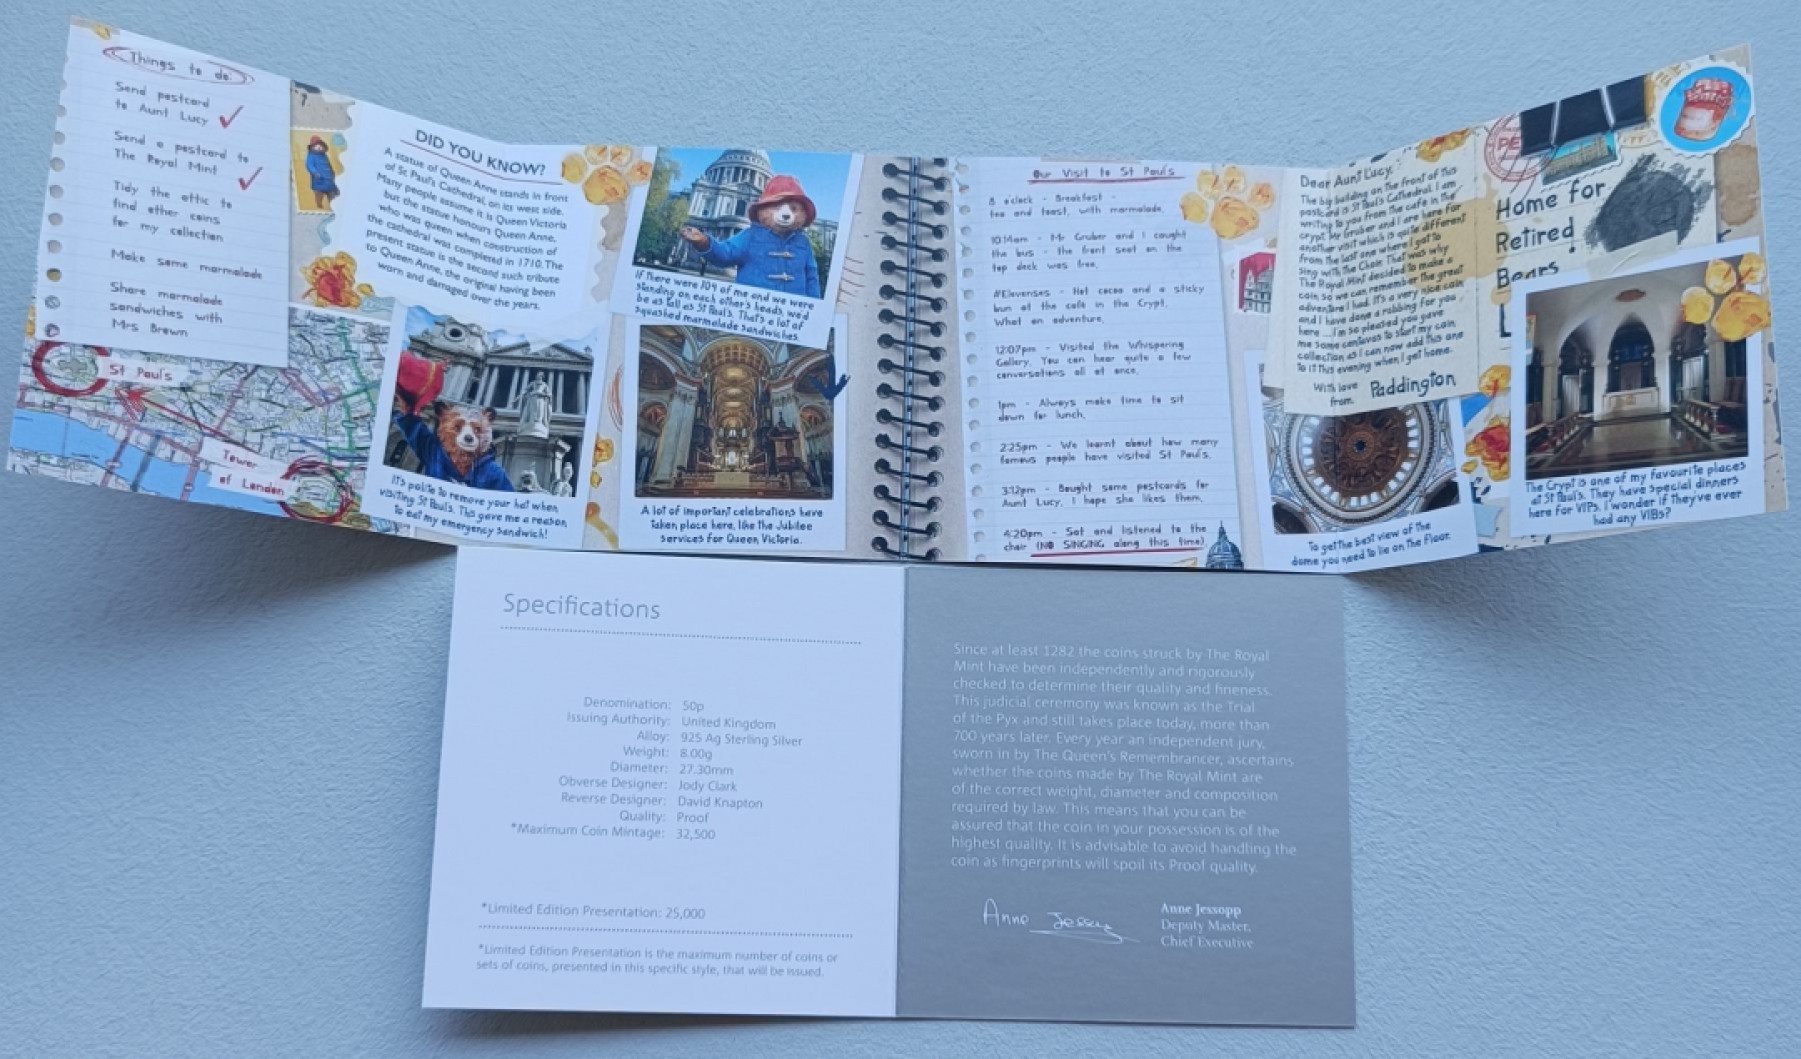 Things to do:
Send postcard
to Aunt Lucy
Send a postcard to
The Royal Mint
Tidy the attic to
find other coins
for my collection
Make some marmalade
Share marmalade
sandwiches with
Mrs Brown
St Paul's
Tower
of London
DID YOU KNOW?
A statue of Queen Anne stands in front
of St Paul's Cathedral, on its west side.
Many people assume it is Queen Victoria
but the statue honours Queen Anne,
who was queen when construction of
the cathedral was completed in 1710. The
present statue is the second such tribute
to Queen Anne, the original having been
worn and damaged over the years.
It's polite to remove your hat when
visiting St Paul's. This gave me a reason
to eat my emergency sandwich!
If there were 109 of me and we were
standing on each other's heads, we'd
be as tall as St Paul's. That's a lot of
squashed marmalade sandwiches.
A lot of important celebrations have
taken place here, like the Jubilee
services for Queen Victoria.
Our Visit to St Paul's
8 o'clock - Breakfast -
tea and toast, with marmalade.
10:14am - Mr Gruber and I caught
the bus - the front seat on the
top deck was free.
#Elevenses - Hot cocoa and a sticky
bun at the café in the Crypt.
What an adventure.
12:07pm - Visited the Whispering
Gallery. You can hear quite a few
conversations all at once.
1pm - Always make time to sit
down for lunch.
2:25pm - We learnt about how many
famous people have visited St Paul's.
3:12pm - Bought some postcards for
Aunt Lucy. I hope she likes them.
4:20pm - Sat and listened to the
choir (NO SINGING along this time).
Dear Aunt Lucy,
The big building on the front of this
postcard is St Paul's Cathedral. I am
writing to you from the café in the
crypt. Mr Gruber and I are here for
another visit which is quite different
from the last one where I got to
sing with the Choir. That was why
The Royal Mint decided to make a
coin, so we can remember the great
adventure I had. It's a very nice coin
and I have done a rubbing for you
here ... I'm so pleased you gave
me some centavos to start my coin
collection as I can now add this one
to it this evening when I get home.
With love
from, Paddington
PE
Home for
Retired
Bears
L
To get the best view of the
dome you need to lie on the floor.
The Crypt is one of my favourite places
at St Paul's. They have special dinners
here for VIPs. I wonder if they've ever
had any VIBs?
Specifications
Denomination: 50p
Issuing Authority: United Kingdom
Alloy: 925 Ag Sterling Silver
Weight: 8.00g
Diameter: 27.30mm
Obverse Designer: Jody Clark
Reverse Designer: David Knapton
Quality: Proof
*Maximum Coin Mintage: 32,500
*Limited Edition Presentation: 25,000
*Limited Edition Presentation is the maximum number of coins or
sets of coins, presented in this specific style, that will be issued.
Since at least 1282 the coins struck by The Royal
Mint have been independently and rigorously
checked to determine their quality and fineness.
This judicial ceremony was known as the Trial
of the Pyx and still takes place today, more than
700 years later. Every year an independent jury,
sworn in by The Queen's Remembrancer, ascertains
whether the coins made by The Royal Mint are
of the correct weight, diameter and composition
required by law. This means that you can be
assured that the coin in your possession is of the
highest quality. It is advisable to avoid handling the
coin as fingerprints will spoil its Proof quality.
Anne Jessopp
Anne Jessopp
Deputy Master,
Chief Executive